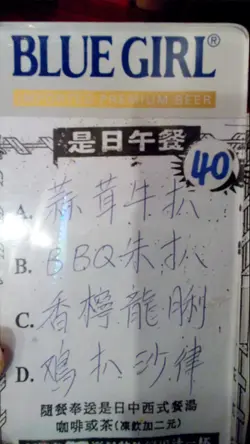 BLUE GIRL®
PREMIUM BEER
是日午餐
40
A. 蒜茸牛扒
B. BBQ朱扒
C. 香檸龍脷
D. 鳮扒沙律
隨餐奉送是日中西式餐湯
咖啡或茶(凍飲加二元)